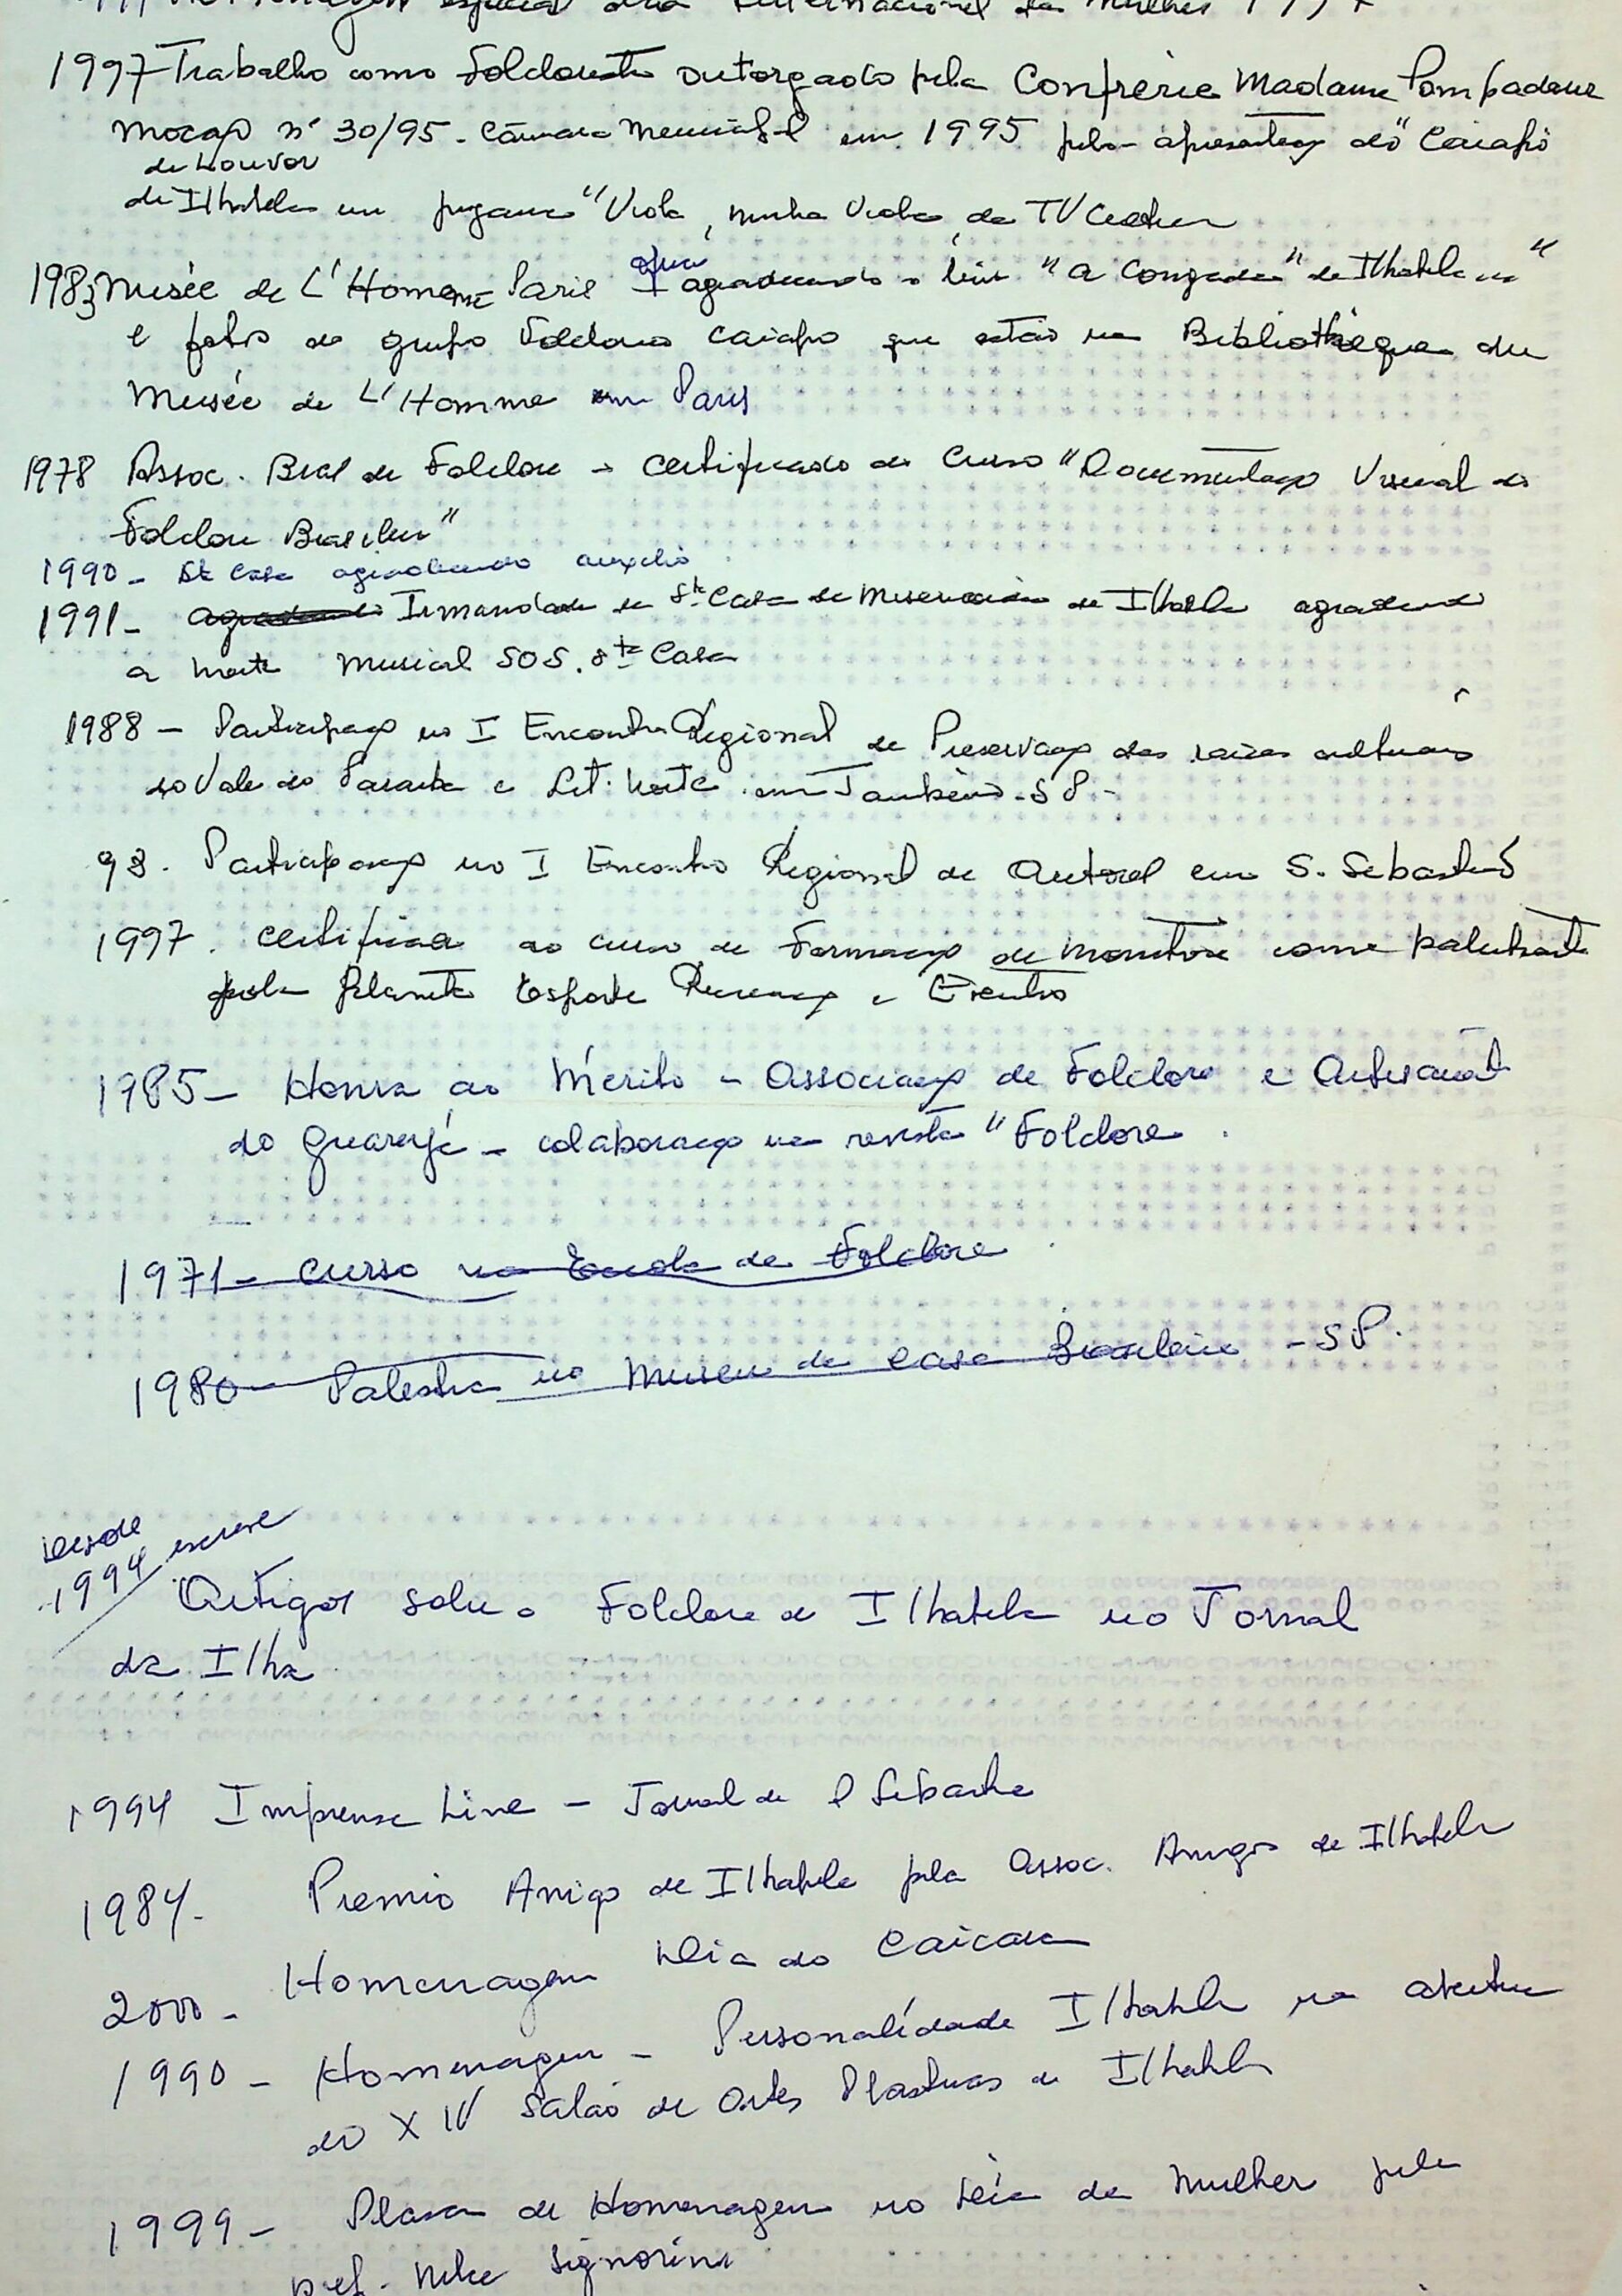 Homenagem especial dia Internacional da Mulher 1997
1997 Trabalho como Folclorista outorgado pela Confrérie Madame Pompadour
Moção nº 30/95 - Câmara Municipal em 1995 pela apresentação do "Caiapó
de Louvor
de Ilhabela no programa "Viola, minha Viola da TV Cultura
1983 Musée de L'Homme Paris agradecendo o livro "a Congada" de Ilhabela "
e fotos do grupo Folclorico caiapo que estão na Bibliothèque du
Musée de L'Homme em Paris
1978 Assoc. Bras de Folclore - certificado do curso "Documentação Visual do
Folclore Brasileiro"
1990 - Sta Casa agradecendo auxilio
1991 - agradecendo Irmandade da Sta Casa de Misericórdia de Ilhabela agradecendo
a noite Musical SOS. Sta Casa
1988 - Participação no I Encontro Regional de Preservação das raizes culturais
do Vale do Paraiba e Lit. Norte em Taubaté - S P -
98. Participação no I Encontro Regional de em S. Sebastião
1997. certificado do curso de Formação de monitores como palestrante
pela Planeta Esporte Recreação e Eventos
1985 - Honra ao Mérito - Associação de Folclore e Artesanato
do Guarujá - colaboração na revista "Folclore.
1971 - curso na Escola de Folclore
1980 - Palestra no Museu da Casa Brasileira - S P.
desde
1994 escreve
Artigos sobre o Folclore de Ilhabela no Jornal
da Ilha
1994 Imprensa Livre - Jornal de S Sebastião
1984. Premio Amigo de Ilhabela pela Assoc. Amigos de Ilhabela
2000 - Homenagem Dia do Caiçara
1990 - Homenagem - Personalidade Ilhabela na abertura
do XIV Salão de Artes Plasticas de Ilhabela
1999 - Placa de Homenagem no Dia da Mulher pela
pref. Nilce Signorini